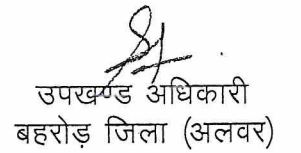 उपखण्ड अधिकारी
बहरोड़ जिला (अलवर)